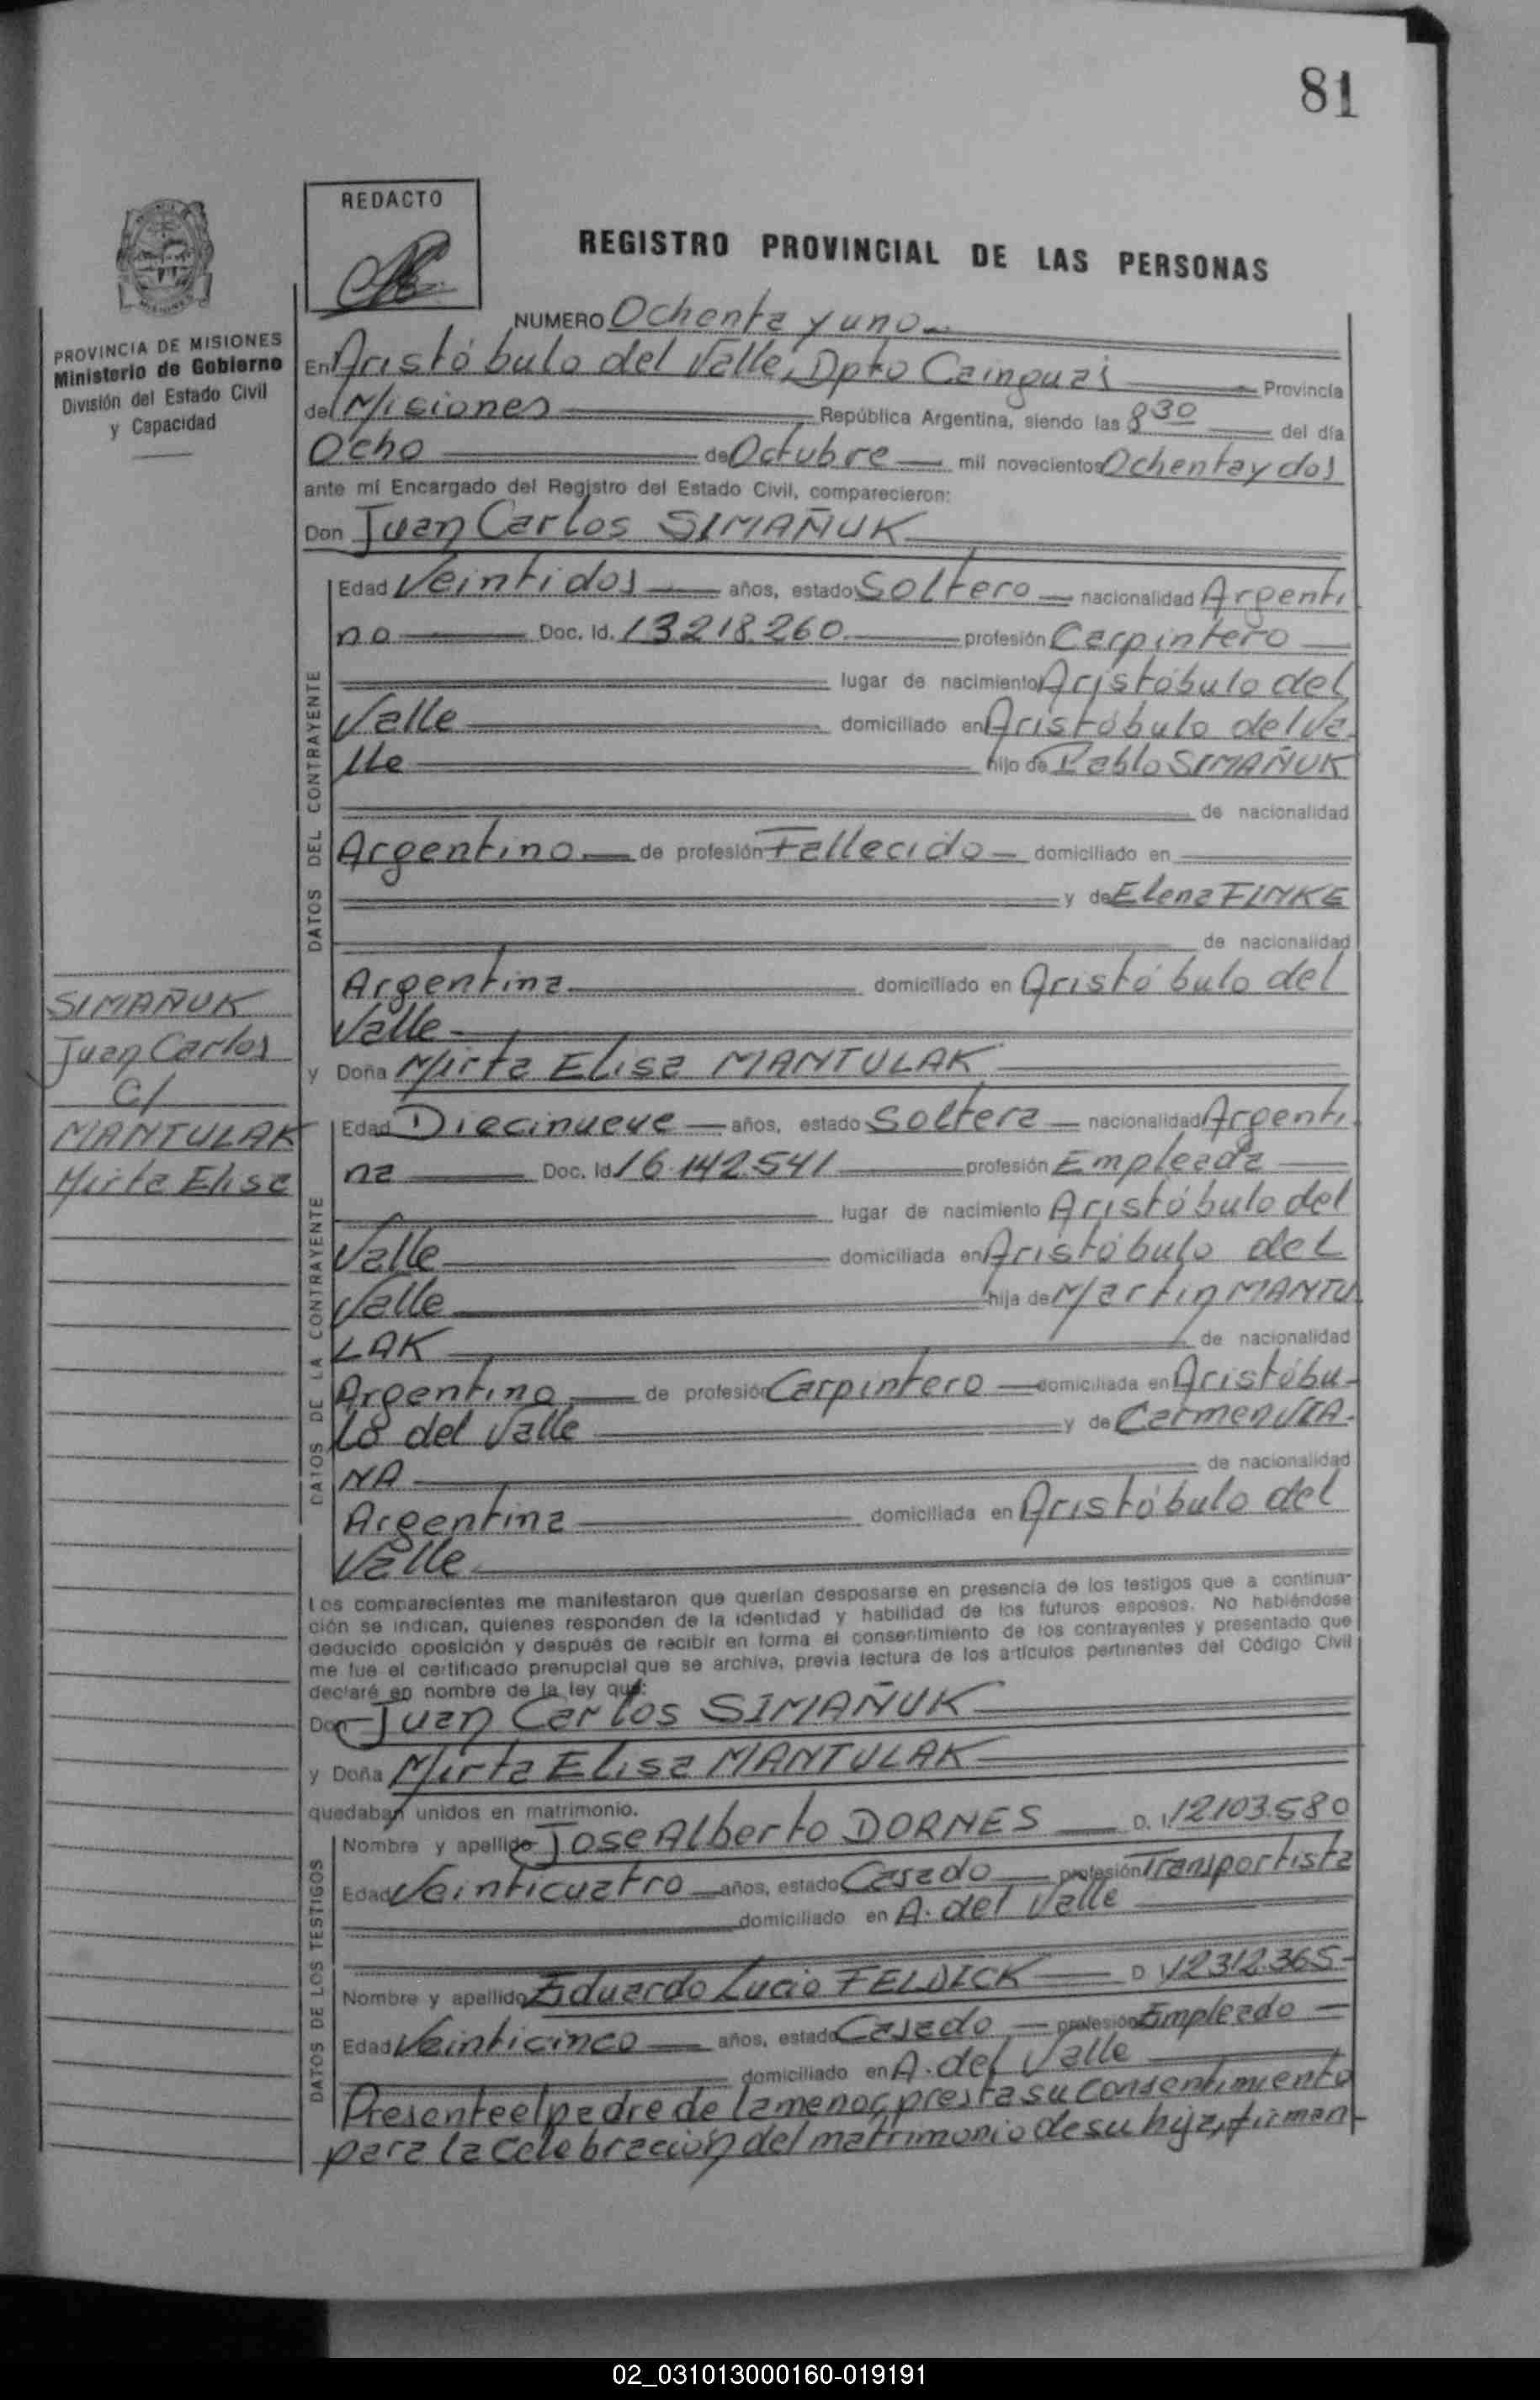 81
REDACTO
REGISTRO PROVINCIAL DE LAS PERSONAS
PROVINCIA DE MISIONES
Ministerio de Gobierno
División del Estado Civil
y Capacidad
NUMERO Ochenta y uno
En Aristóbulo del Valle, Dpto Cainguas Provincia
de Misiones República Argentina, siendo las 8 30 del día
Ocho de Octubre mil novecientos Ochenta y dos
ante mí Encargado del Registro del Estado Civil, comparecieron:
Don Juan Carlos SIMAÑUK
DATOS DEL CONTRAYENTE
Edad Veintidos años, estado Soltero nacionalidad Argenti
no Doc. Id. 13218.260 profesión Carpintero
lugar de nacimiento Aristóbulo del
Valle domiciliado en Aristóbulo del Va
lle hijo de Pablo SIMAÑUK
de nacionalidad
Argentino de profesión Fallecido domiciliado en
y de Elena FINKE
de nacionalidad
Argentina domiciliado en Aristóbulo del
Valle
SIMAÑUK
Juan Carlos
C/
MANTULAK
Mirta Elisa
y Doña Mirta Elisa MANTULAK
DATOS DE LA CONTRAYENTE
Edad Diecinueve años, estado Soltera nacionalidad Argenti
na Doc. Id 16.142.541 profesión Empleada
lugar de nacimiento Aristóbulo del
Valle domiciliada en Aristóbulo del
Valle hija de Martin MANTU
LAK de nacionalidad
Argentino de profesión Carpintero domiciliada en Aristóbu-
lo del Valle y de Carmen VIA-
NA de nacionalidad
Argentina domiciliada en Aristóbulo del
Valle
Los comparecientes me manifestaron que querían desposarse en presencia de los testigos que a continua-
ción se indican, quienes responden de la identidad y habilidad de los futuros esposos. No habiéndose
deducido oposición y después de recibir en forma el consentimiento de los contrayentes y presentado que
me fue el certificado prenupcial que se archiva, previa lectura de los artículos pertinentes del Código Civil
declaré en nombre de la ley que:
Don Juan Carlos SIMAÑUK
y Doña Mirta Elisa MANTULAK
quedaban unidos en matrimonio.
DATOS DE LOS TESTIGOS
Nombre y apellido Jose Alberto DORNES D. I. 12103.580
Edad Veinticuatro años, estado Casado profesión Transportista
domiciliado en A. del Valle
Nombre y apellido Eduardo Lucio FELDICK D I 12312.365-
Edad Veinticinco años, estado Casado profesión Empleado
domiciliado en A. del Valle
Presente el padre de la menor, presta su consentimiento
para la celebración del matrimonio de su hija, firman
02_031013000160-019191